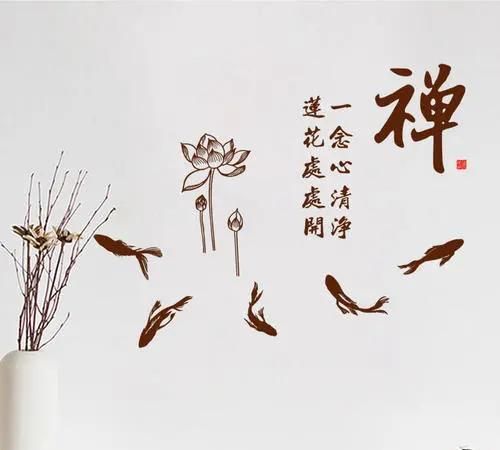 禅
一念心清净
蓮花處處開